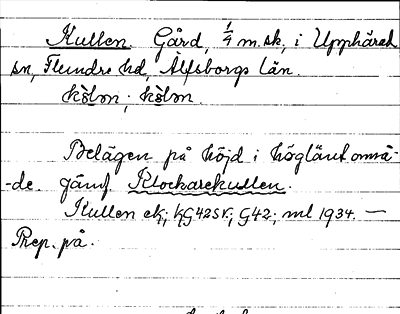 Kullen. Gård, 1/4 m.sk, i Upphärad
sn, Flundre hd, Älfsborgs län.
Belägen på höjd i högländ områ-
-de. jämf. Klockarekullen.
Kullen ek; KG42SV; G42; ml 1934. —
Prep. på.